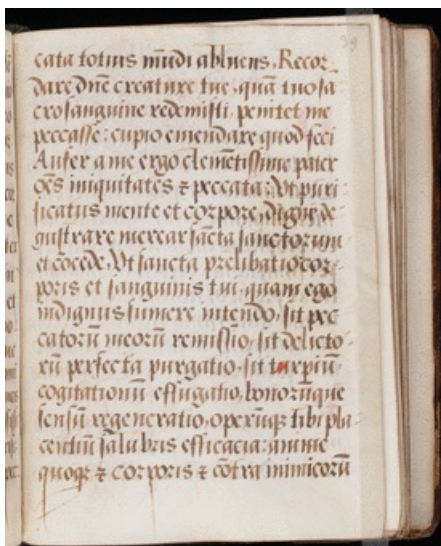 39
cata totius mūdi abluens. Recor
dare dn̄e creature tue, quā tuo sa
cro sanguine redemisti, penitet me
peccasse: cupio emendare quod feci
Aufer a me ergo clemētissime pater
oēs iniquitates ⁊ peccata: Vt puri
ficatus mente et corpore, digne de
gustrare merear sācta sanctorum
et cōcede, Vt sancta prelibatio cor
poris et sanguinis tui, quam ego
indignus sumere intendo, sit pec
catorū meorū remissio, sit delicto
rū perfecta purgatio, sit turpiū
cogitationū effugatio, bonorūque
sensū regeneratio, operūqꝫ tibi pla
centiū salubris efficacia: anime
quoqꝫ ⁊ corporis ⁊ cōtra inimicorū